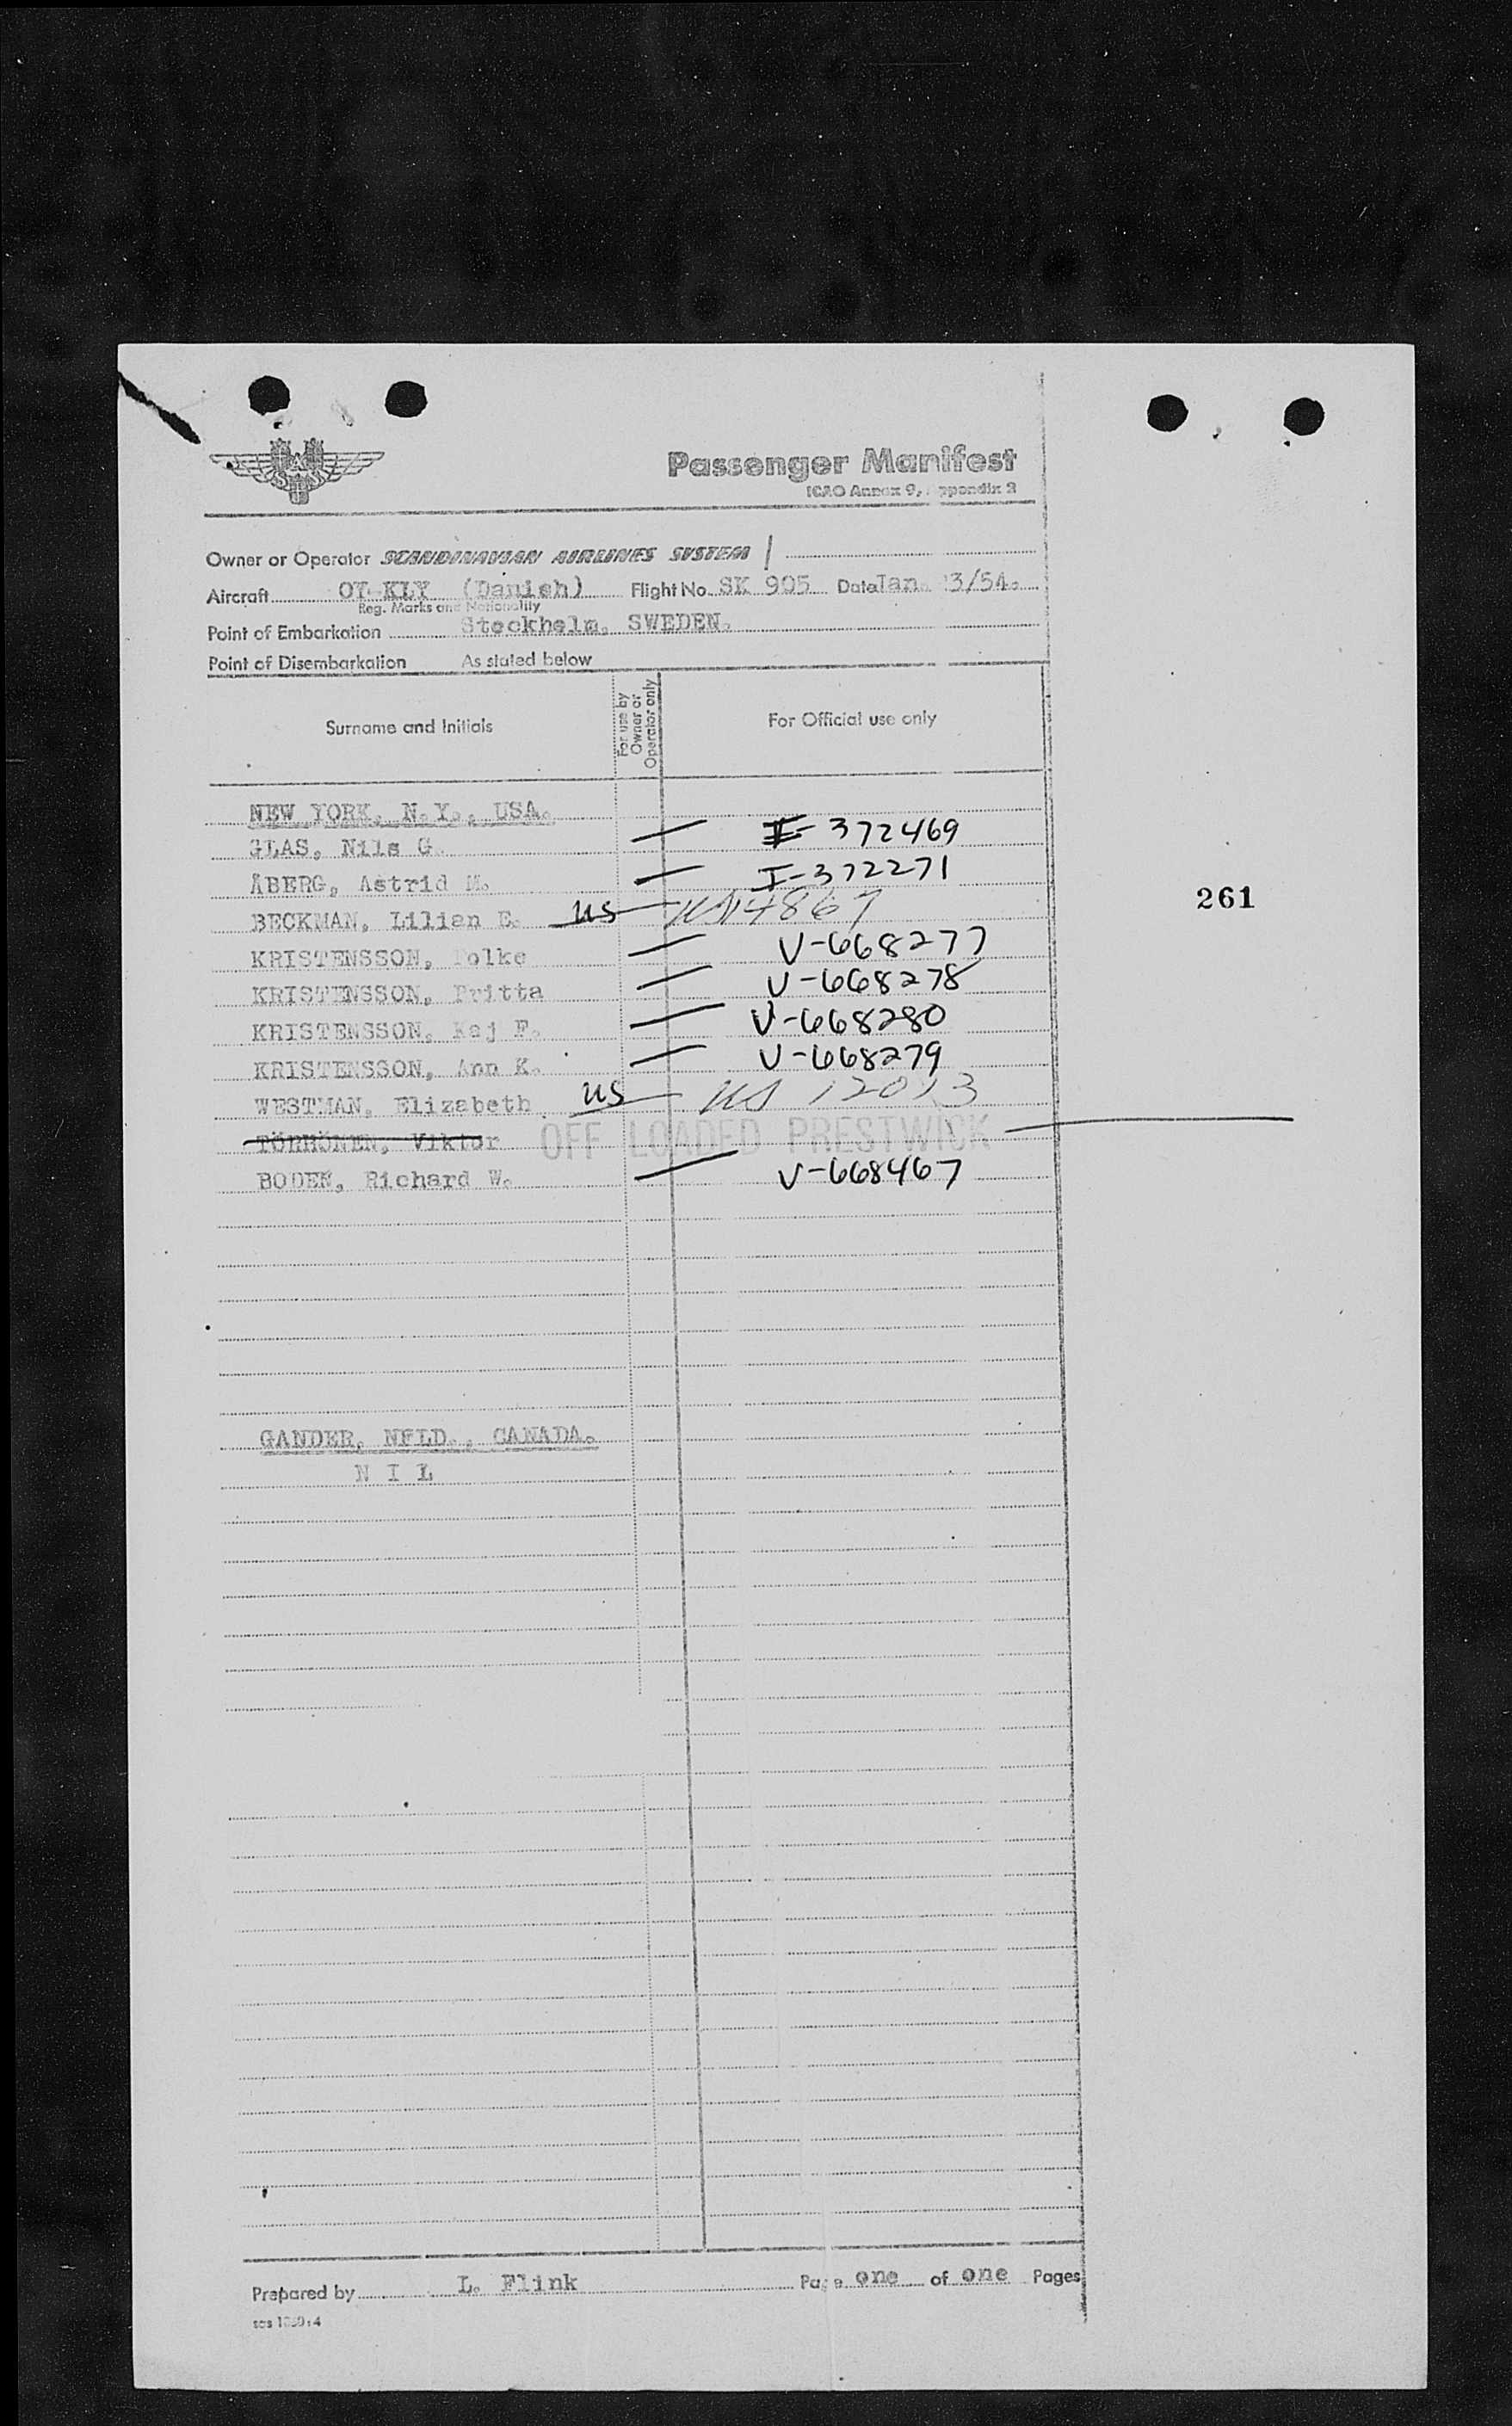 SAS
Passenger Manifest
ICAO Annex 9, Appendix 2
Owner or Operator SCANDINAVIAN AIRLINES SYSTEM
Aircraft OY-KLY (Danish) Flight No. SK 905 Date Jan. 3/54.
Reg. Marks and Nationality
Point of Embarkation Stockholm, SWEDEN.
Point of Disembarkation As stated below
Surname and Initials For use by Owner or Operator only For Official use only
NEW YORK, N.Y., USA.
GLAS, Nils G. I-372469
ÅBERG, Astrid M. I-372271
BECKMAN, Lilian E. US US 14867
KRISTENSSON, Folke V-668277
KRISTENSSON, Britta V-668278
KRISTENSSON, Kaj F. V-668280
KRISTENSSON, Ann K. V-668279
WESTMAN, Elizabeth US US
Viktor OFF LOADED PRESTWICK
BODEN, Richard W. V-668467
261
GANDER, NFLD., CANADA.
N I L
Prepared by L. Flink Page one of one Pages